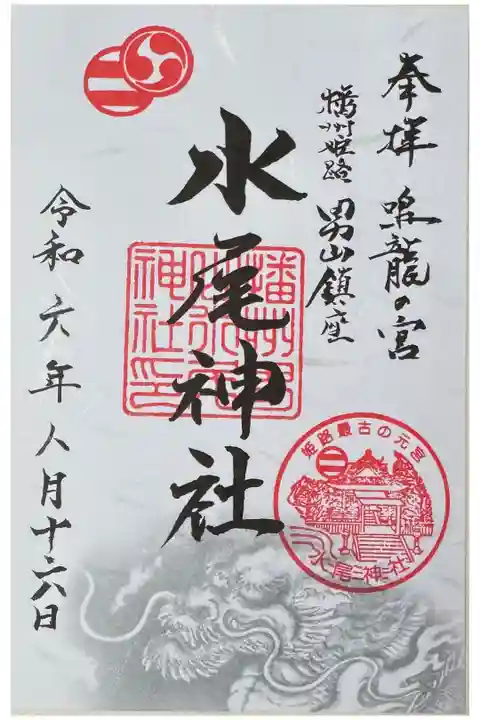 奉拝 鳴龍の宮
播州姫路 男山鎮座
水尾神社
令和六年八月十六日
姫路最古の元宮
水尾神社